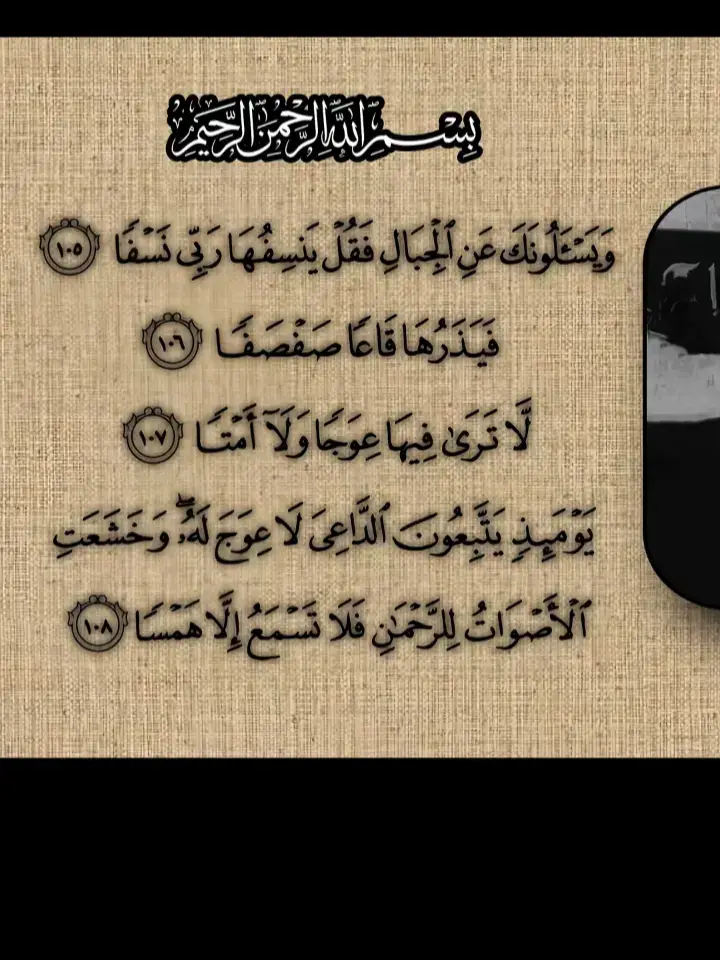 بِسْمِ اللَّهِ الرَّحْمَنِ الرَّحِيمِ
وَيَسْـَٔلُونَكَ عَنِ ٱلْجِبَالِ فَقُلْ يَنسِفُهَا رَبِّى نَسْفًا ١٠٥
فَيَذَرُهَا قَاعًا صَفْصَفًا ١٠٦
لَّا تَرَىٰ فِيهَا عِوَجًا وَلَآ أَمْتًا ١٠٧
يَوْمَئِذٍ يَتَّبِعُونَ ٱلدَّاعِىَ لَا عِوَجَ لَهُۥ ۖ وَخَشَعَتِ
ٱلْأَصْوَاتُ لِلرَّحْمَـٰنِ فَلَا تَسْمَعُ إِلَّا هَمْسًا ١٠٨